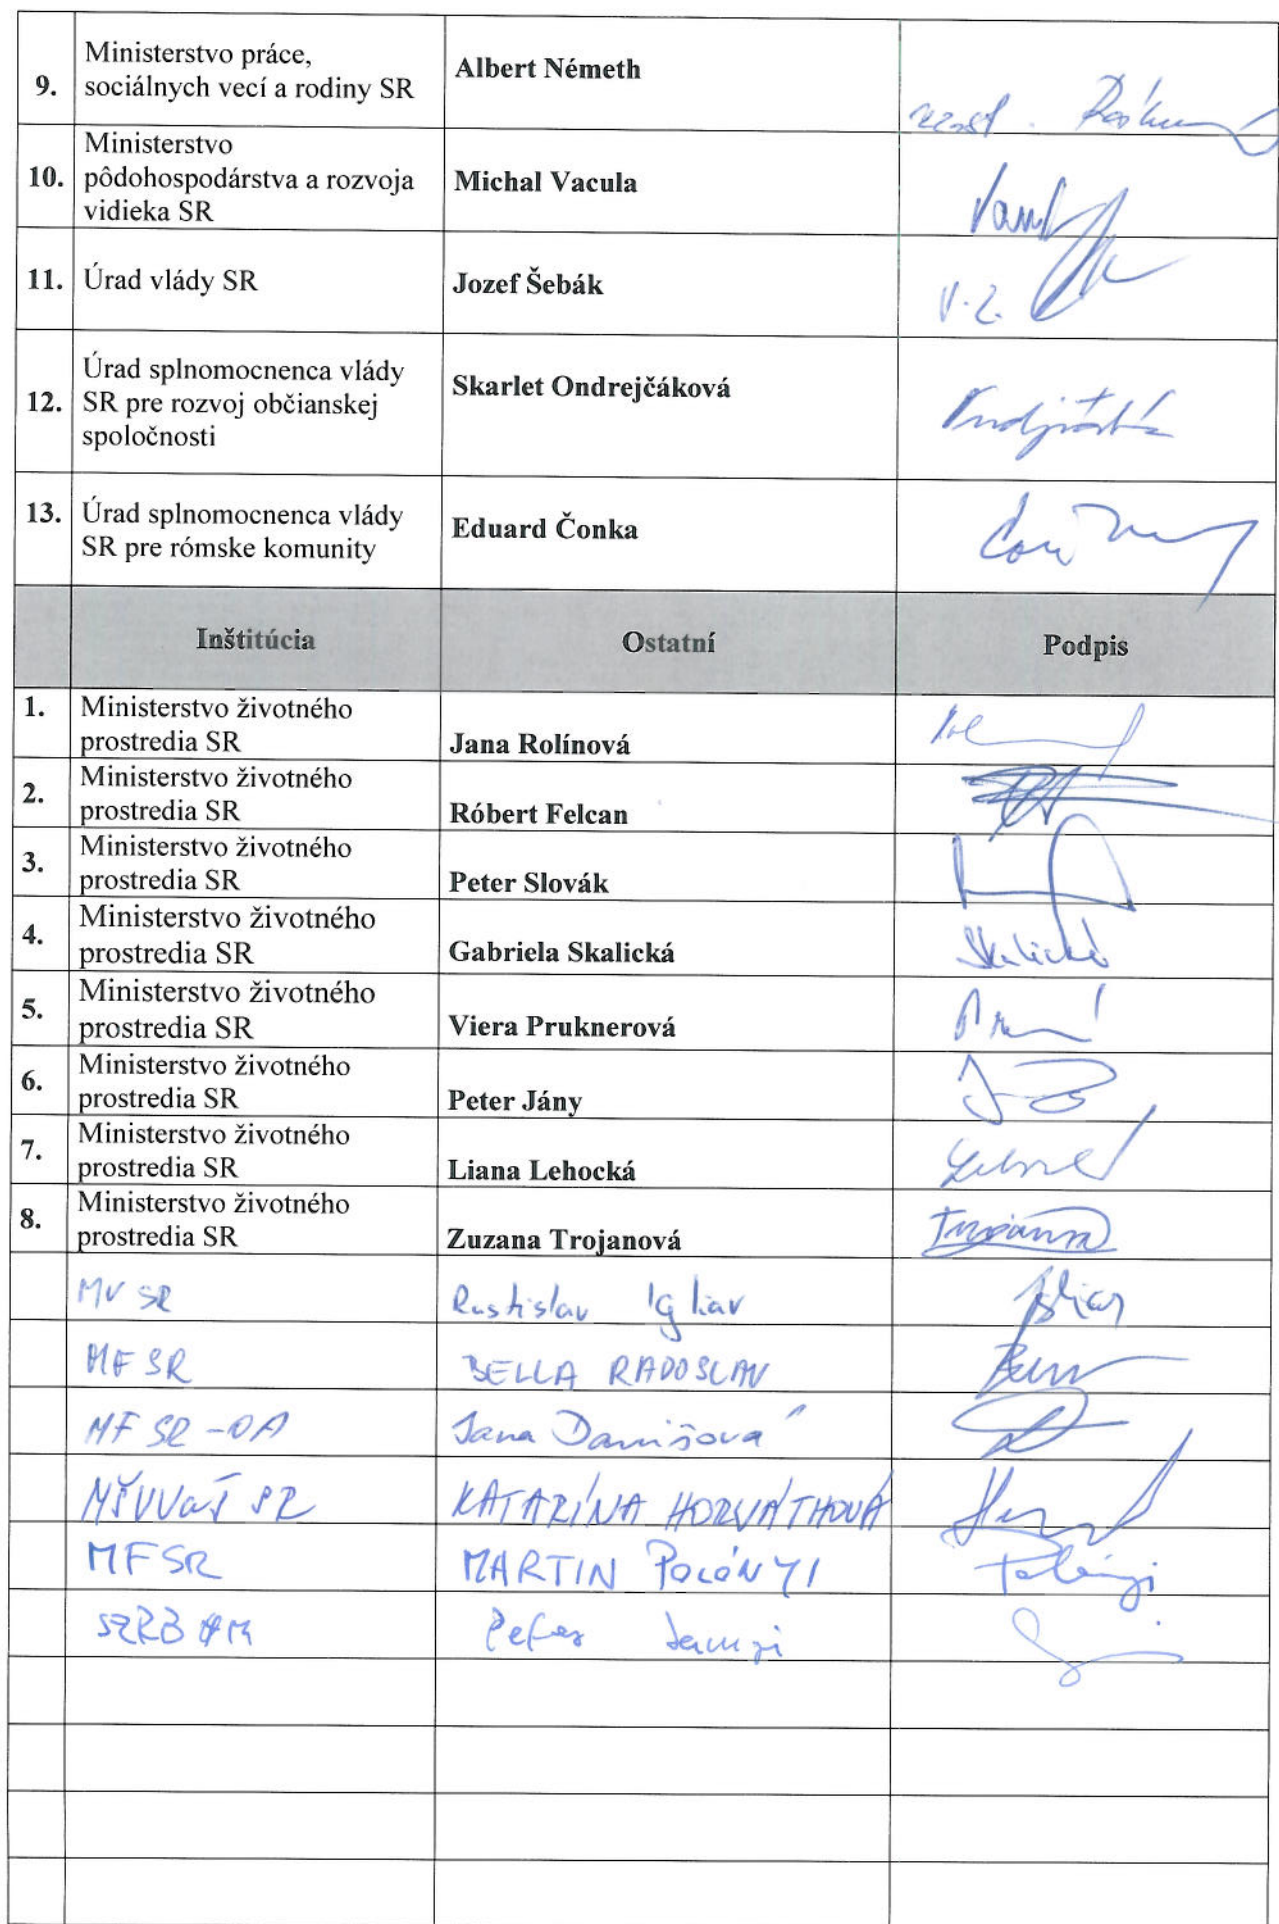 9.
Ministerstvo práce,
sociálnych vecí a rodiny SR
Albert Németh
zast.
10.
Ministerstvo
pôdohospodárstva a rozvoja
vidieka SR
Michal Vacula
11.
Úrad vlády SR
Jozef Šebák
v.z.
12.
Úrad splnomocnenca vlády
SR pre rozvoj občianskej
spoločnosti
Skarlet Ondrejčáková
13.
Úrad splnomocnenca vlády
SR pre rómske komunity
Eduard Čonka
Inštitúcia
Ostatní
Podpis
1.
Ministerstvo životného
prostredia SR
Jana Rolínová
2.
Ministerstvo životného
prostredia SR
Róbert Felcan
3.
Ministerstvo životného
prostredia SR
Peter Slovák
4.
Ministerstvo životného
prostredia SR
Gabriela Skalická
Skalická
5.
Ministerstvo životného
prostredia SR
Viera Pruknerová
6.
Ministerstvo životného
prostredia SR
Peter Jány
7.
Ministerstvo životného
prostredia SR
Liana Lehocká
8.
Ministerstvo životného
prostredia SR
Zuzana Trojanová
Trojanová
MV SR
Rastislav Igliar
MF SR
BELLA RADOSLAV
MF SR - OA
Jana Danišová
MŠVVaŠ SR
KATARÍNA HORVÁTHOVÁ
MFSR
MARTIN POLÓNYI
Polónyi
Peter